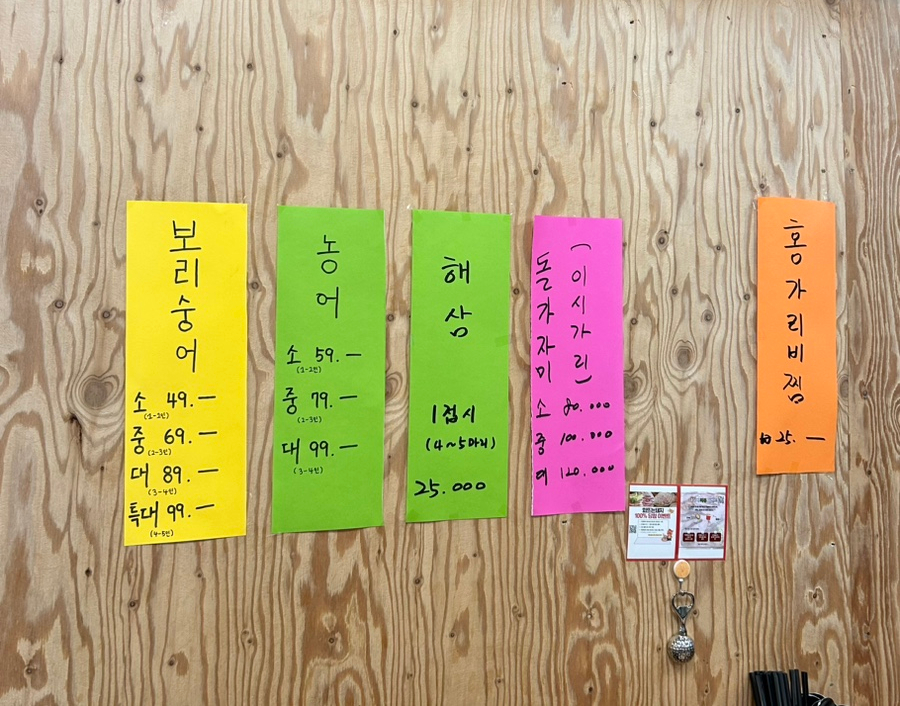 보리숭어
소 49.—
(1-2인)
중 69.—
(2-3인)
대 89.—
(3-4인)
특대 99.—
(4-5인)
농어
소 59.—
(1-2인)
중 79.—
(2-3인)
대 99.—
(3-4인)
해삼
1접시
(4~5마리)
25.000
돌가자미
(이시가리)
소 80.000
중 100.000
대 120.000
홍가리비찜
25.—
100% 당첨 이벤트